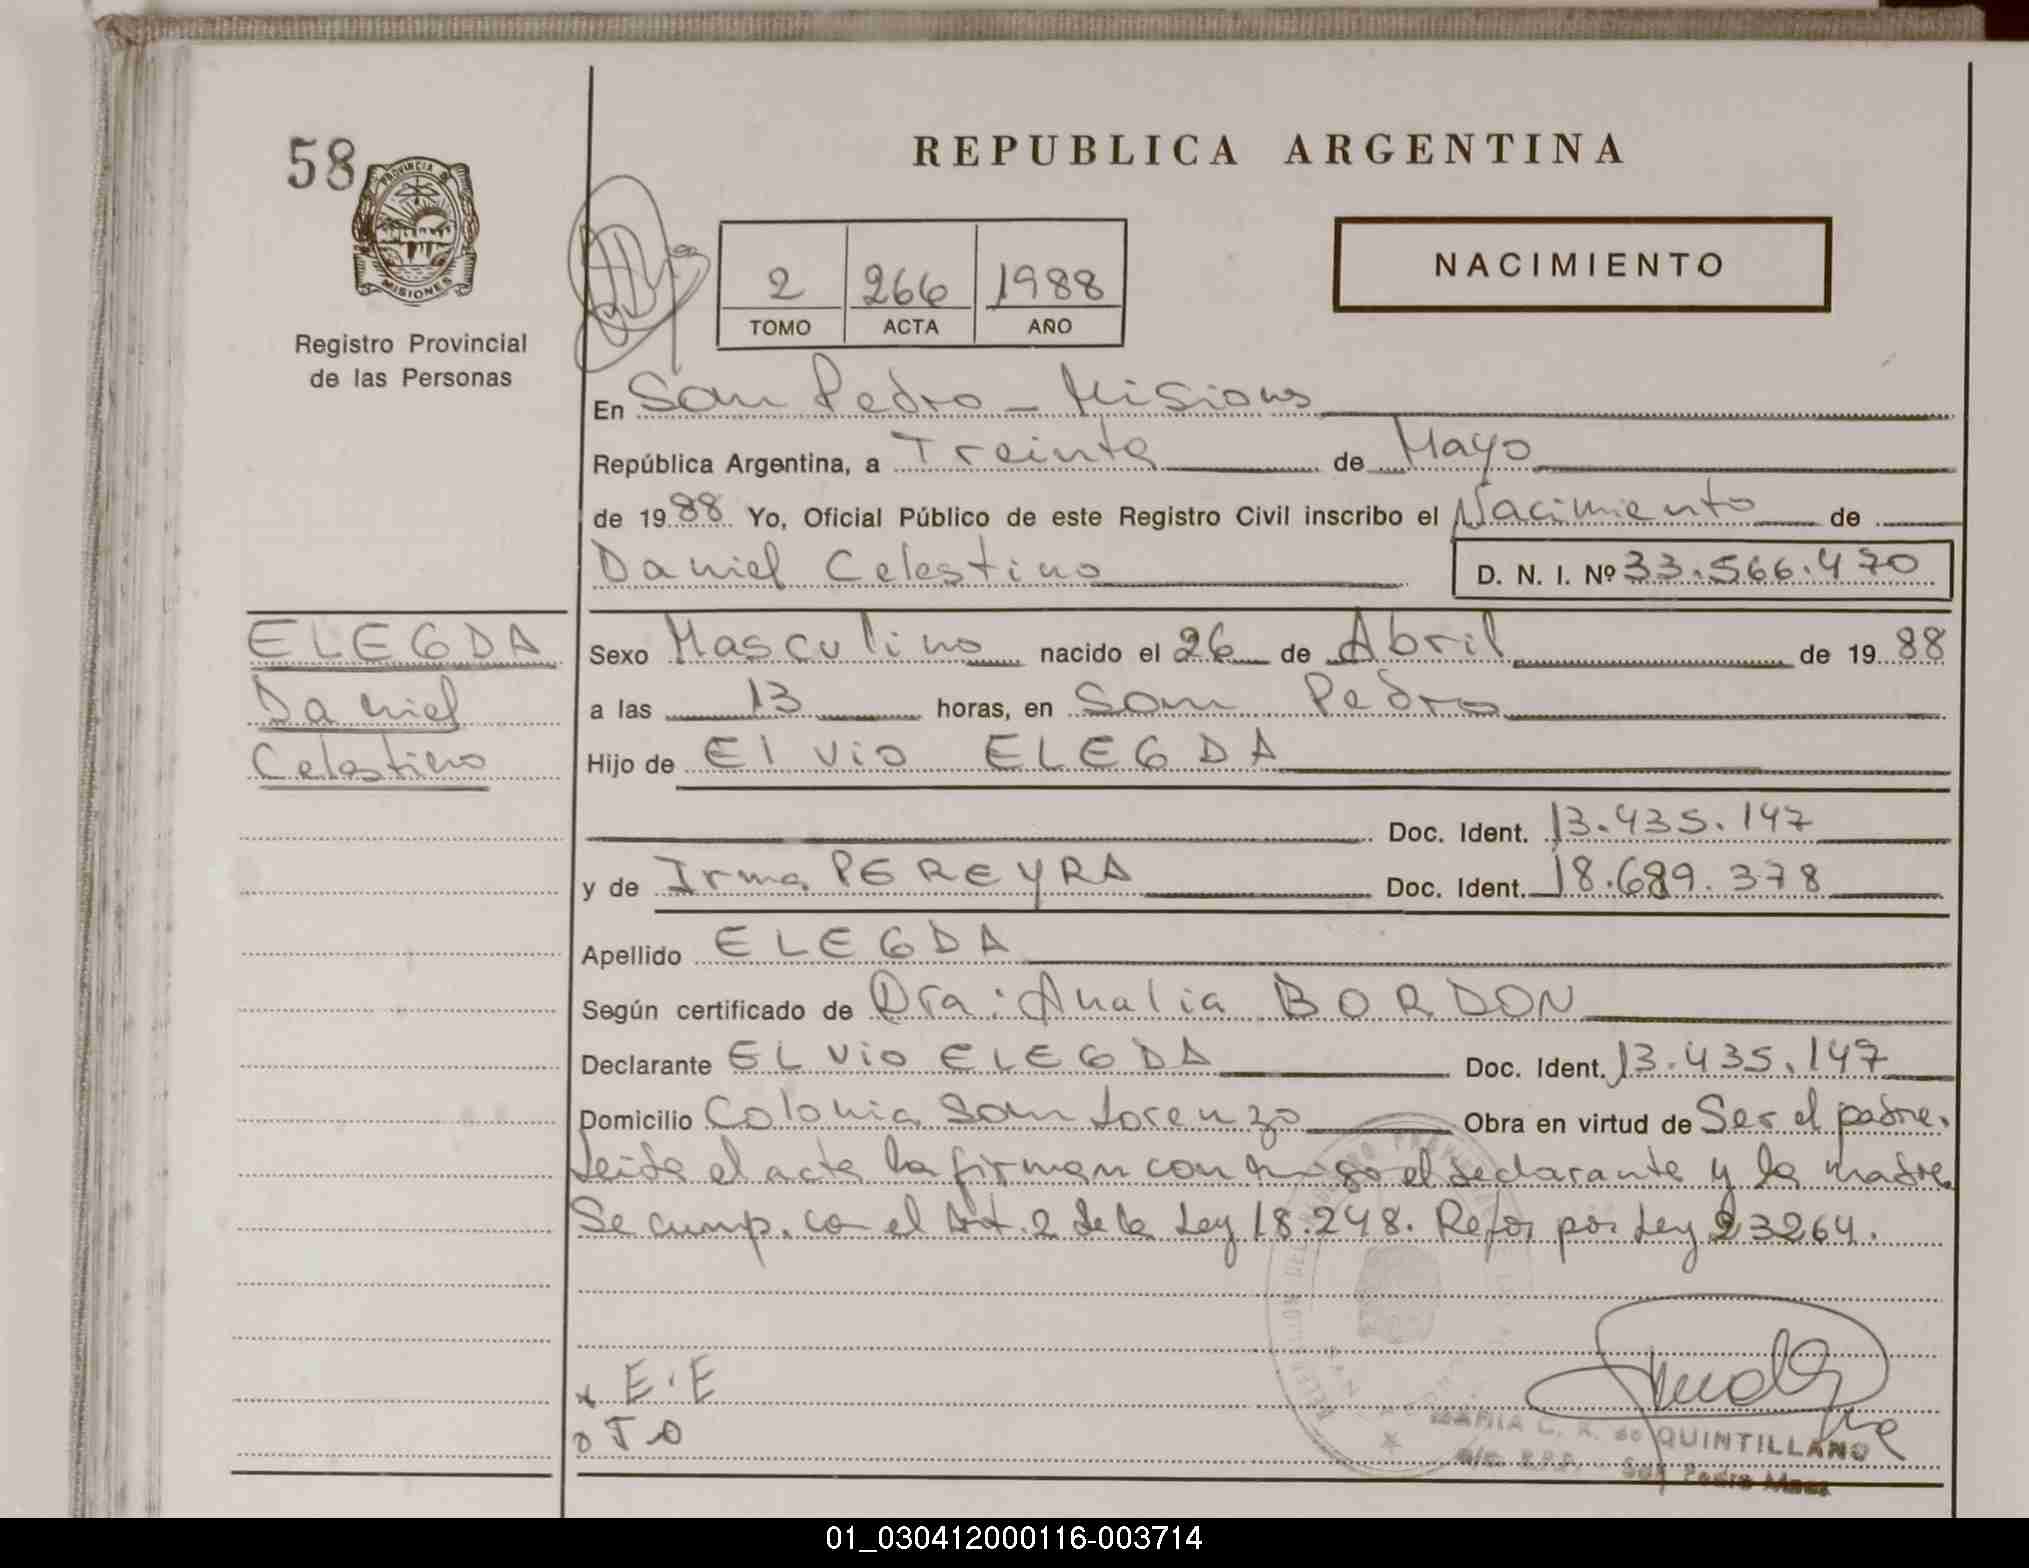 REPUBLICA ARGENTINA
58
PROVINCIA DE
MISIONES
Registro Provincial
de las Personas
2 266 1988
TOMO ACTA AÑO
NACIMIENTO
En San Pedro - Misiones
República Argentina, a Treinta de Mayo
de 1988 Yo, Oficial Público de este Registro Civil inscribo el Nacimiento de
Daniel Celestino D. N. I. Nº 33.566.470
ELEGDA
Daniel
Celestino
Sexo Masculino nacido el 26 de Abril de 1988
a las 13 horas, en San Pedro
Hijo de Elvio ELEGDA
Doc. Ident. 13.435.147
y de Irma PEREYRA Doc. Ident. 18.689.378
Apellido ELEGDA
Según certificado de Dra: Analia BORDON
Declarante ELVIO ELEGDA Doc. Ident. 13.435.147
Domicilio Colonia San Lorenzo Obra en virtud de Ser el padre.
Leida el acta la firman conmigo el declarante y la madre.
Se cump. con el Art. 2 de la Ley 18.248. Refor por Ley 23264.
x E.E
MARIA C. R. de QUINTILLANO
a/c. R.P.P. - San Pedro Mnes
01_030412000116-003714